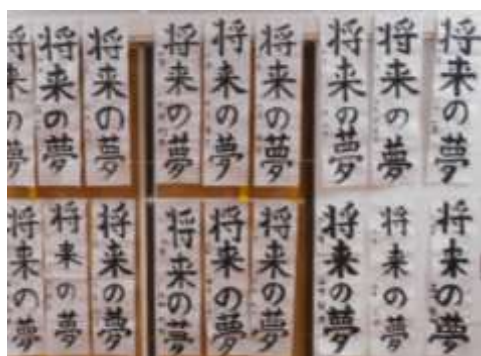 将来の夢
将来の夢
将来の夢
将来の夢
将来の夢
将来の夢
将来の夢
将来の夢
将来の夢
将来の夢
将来の夢
将来の夢
将来の夢
将来の夢
将来の夢
将来の夢
将来の夢
将来の夢